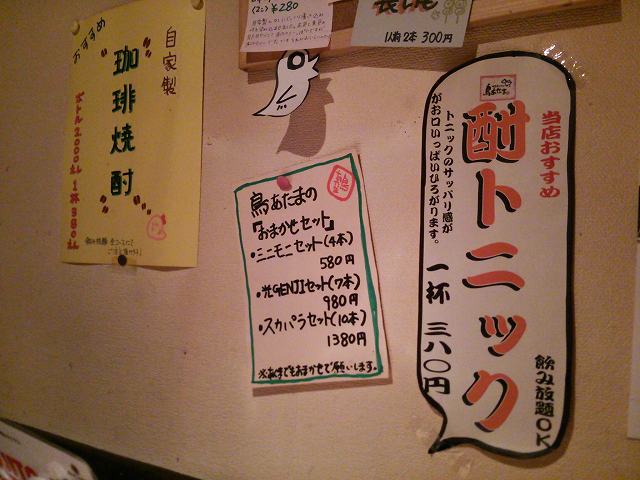 おすすめ
自家製
珈琲焼酎
ボトル2,000えん 1杯380えん
(2コ) ¥280
1人前 2本 300円
鳥あたまの
『おまかせセット』
・ミニモニセット(4本)
580円
・光GENJIセット(7本)
980円
・スカパラセット(10本)
1380円
※あくまでもおまかせで願いします。
当店おすすめ
鳥あたま
酎トニック
トニックのサッパリ感が
がお口いっぱいひろがります。
一杯 三八〇円
飲み放題OK